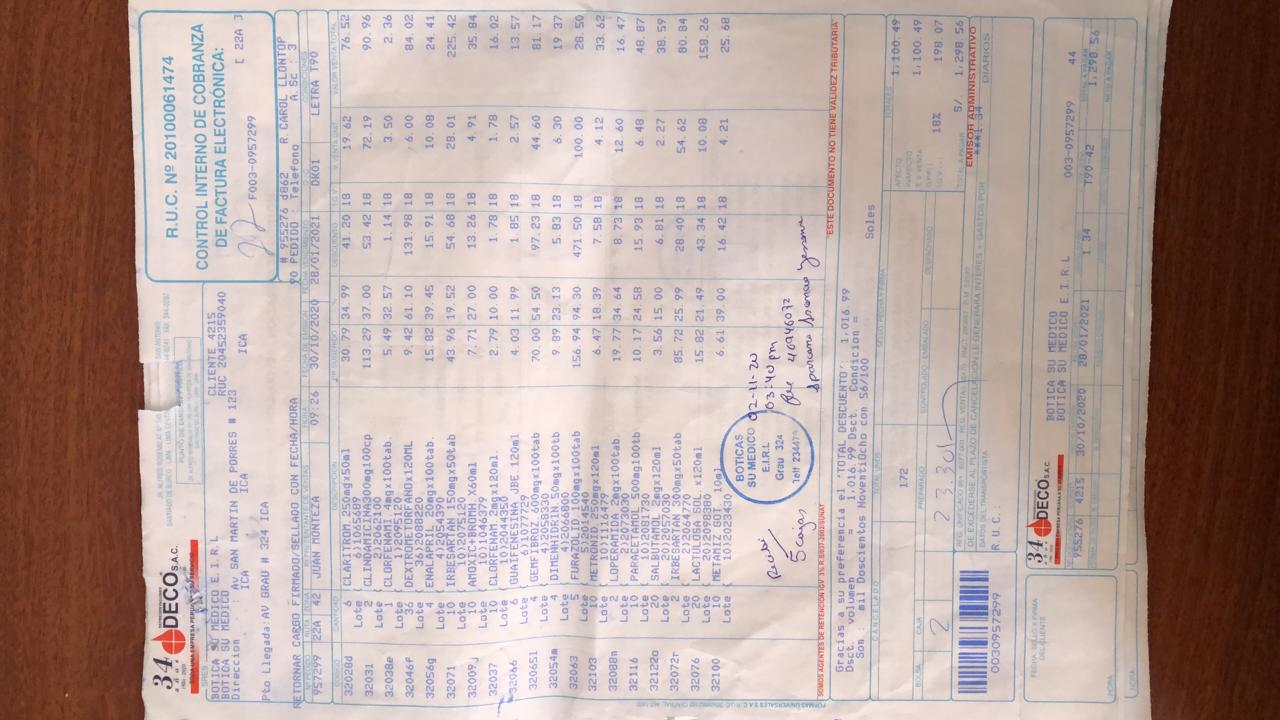 34
años
1986 - 2020
DECO S.A.C.
TODA UNA EMPRESA PERUANA
R.U.C. Nº 20100061474
CONTROL INTERNO DE COBRANZA
DE FACTURA ELECTRÓNICA:
F003-0957299 [ 22A ]
BOTICA SU MEDICO E.I.R.L CLIENTE 4215
BOTICA SU MEDICO RUC 20452359040
Direccion : Av SAN MARTIN DE PORRES # 123
ICA ICA ICA
Pto Llegada:AV GRAU # 324 ICA
# 955276 d862 R.CAROL LLONTOP
PEDIDO : Telefono A.Sc.: 3
RETORNAR CARGO FIRMADO/SELLADO CON FECHA/HORA
957299 22A 42 JUAN MONTEZA 09:26 30/10/2020 28/01/2021 DK01 LETRA T90
32028d 6 CLARITROM 250mgx50ml 30.79 34.99 41.20 18 19.62 76.52
Lote ( 6)1065689
32031 2 CLINDAMICINA300mg100cp 113.29 37.00 53.42 18 72.19 90.96
Lote ( 2)2062100
32038e 1 CLORFENAMI 4mgx100tab. 5.49 32.57 1.14 18 3.50 2.36
Lote ( 1)2095120
32046f 36 DEXTROMETORFANOx120ML 9.42 61.10 131.98 18 6.00 84.02
Lote
32056g 4 ENALAPRIL 20mgx100tab. 15.82 39.45 15.91 18 10.08 24.41
Lote ( 4)2054390
32071 10 IRBESARTAN 150mgx50tab 43.96 19.52 54.68 18 28.01 225.42
Lote ( 10)1075120
32009j 10 AMOXIC+BROMH.X60ml 7.71 27.00 13.26 18 4.91 35.84
Lote ( 10)1046379
32037 10 CLORFENAM 2mgx120ml. 2.79 10.00 1.78 18 1.78 16.02
Lote ( 10)2044350
32066 6 GUAIFENESINA JBE 120ml 4.03 11.99 1.85 18 2.57 13.57
Lote ( 6)1077729
32065l 4 GEMFIBROZ.600mgx100tab 70.00 54.50 97.23 18 44.60 81.17
Lote ( 4)2058330
32054m 4 DIMENHIDRIN.50mgx100tb 9.89 23.13 5.83 18 6.30 19.37
Lote ( 4)2066800
32063 5 FURAZOLID 100mgx100tab 156.94 94.30 471.50 18 100.00 28.50
Lote ( 5)2014540
32103 10 METRONID.250mgx120ml 6.47 18.39 7.58 18 4.12 33.62
Lote
32088n 2 LOPERAMIDA 2mgx100tab. 19.77 34.64 8.73 18 12.60 16.47
Lote ( 2)2073030
32116 10 PARACETAMOL 500mg100tb 10.17 24.58 15.93 18 6.48 48.87
Lote
32122o 20 SALBUTAMOL 2mgx120ml 3.56 15.00 6.81 18 2.27 38.59
Lote ( 20)2057030
32072r 2 IRBESARTAN 300mgx50tab 85.72 25.99 28.40 18 54.62 80.84
Lote ( 2)2064750
32076 20 LACTULOSA SOL x120ml 15.82 21.49 43.34 18 10.08 158.26
Lote ( 20)2098380
32100 10 METAMIZ GOT 10ml 6.61 39.00 16.42 18 4.21 25.68
Lote ( 10)2023430
BOTICAS
SU MEDICO
E.I.R.L
Grau 324
02-11-20
03:40 pm
Recibi
5 cajas
SOMOS AGENTES DE RETENCIÓN IGV 3% R.S/037-2002/SUNAT
"ESTE DOCUMENTO NO TIENE VALIDEZ TRIBUTARIA
Gracias a su preferencia el 'TOTAL DESCUENTO': 1,016.99
Dsct. volumen = 1,016.99 Dsct. Condicion =
Son : mil Doscientos NoventiOcho con 56/100 Soles
CANCELADO
TOTAL UNDS.
172
TOTALES
1,100.49
1,100.49
18% 198.07
TOTAL A PAGAR S/. 1,298.56
BOLSA
CAJA
2
PREPARADO
CONTROL
EMBALADO
DESPACHADO
EMISOR ADMINISTRATIVO
DE EXCEDERSE AL PLAZO DE CANCELACIÓN LE GENERARA INTERES + GASTOS POR ***1.34 DIARIOS
0030957299
DATOS DEL TRANSPORTISTA
R.U.C.:
FECHA, SELLO Y FIRMA
DEL CLIENTE
HORA
34
DECO S.A.C.
BOTICA SU MEDICO
BOTICA SU MEDICO E.I.R.L
003-0957299 44
955276 4215 30/10/2020 28/01/2021 1.34 T90-42 1,298.56